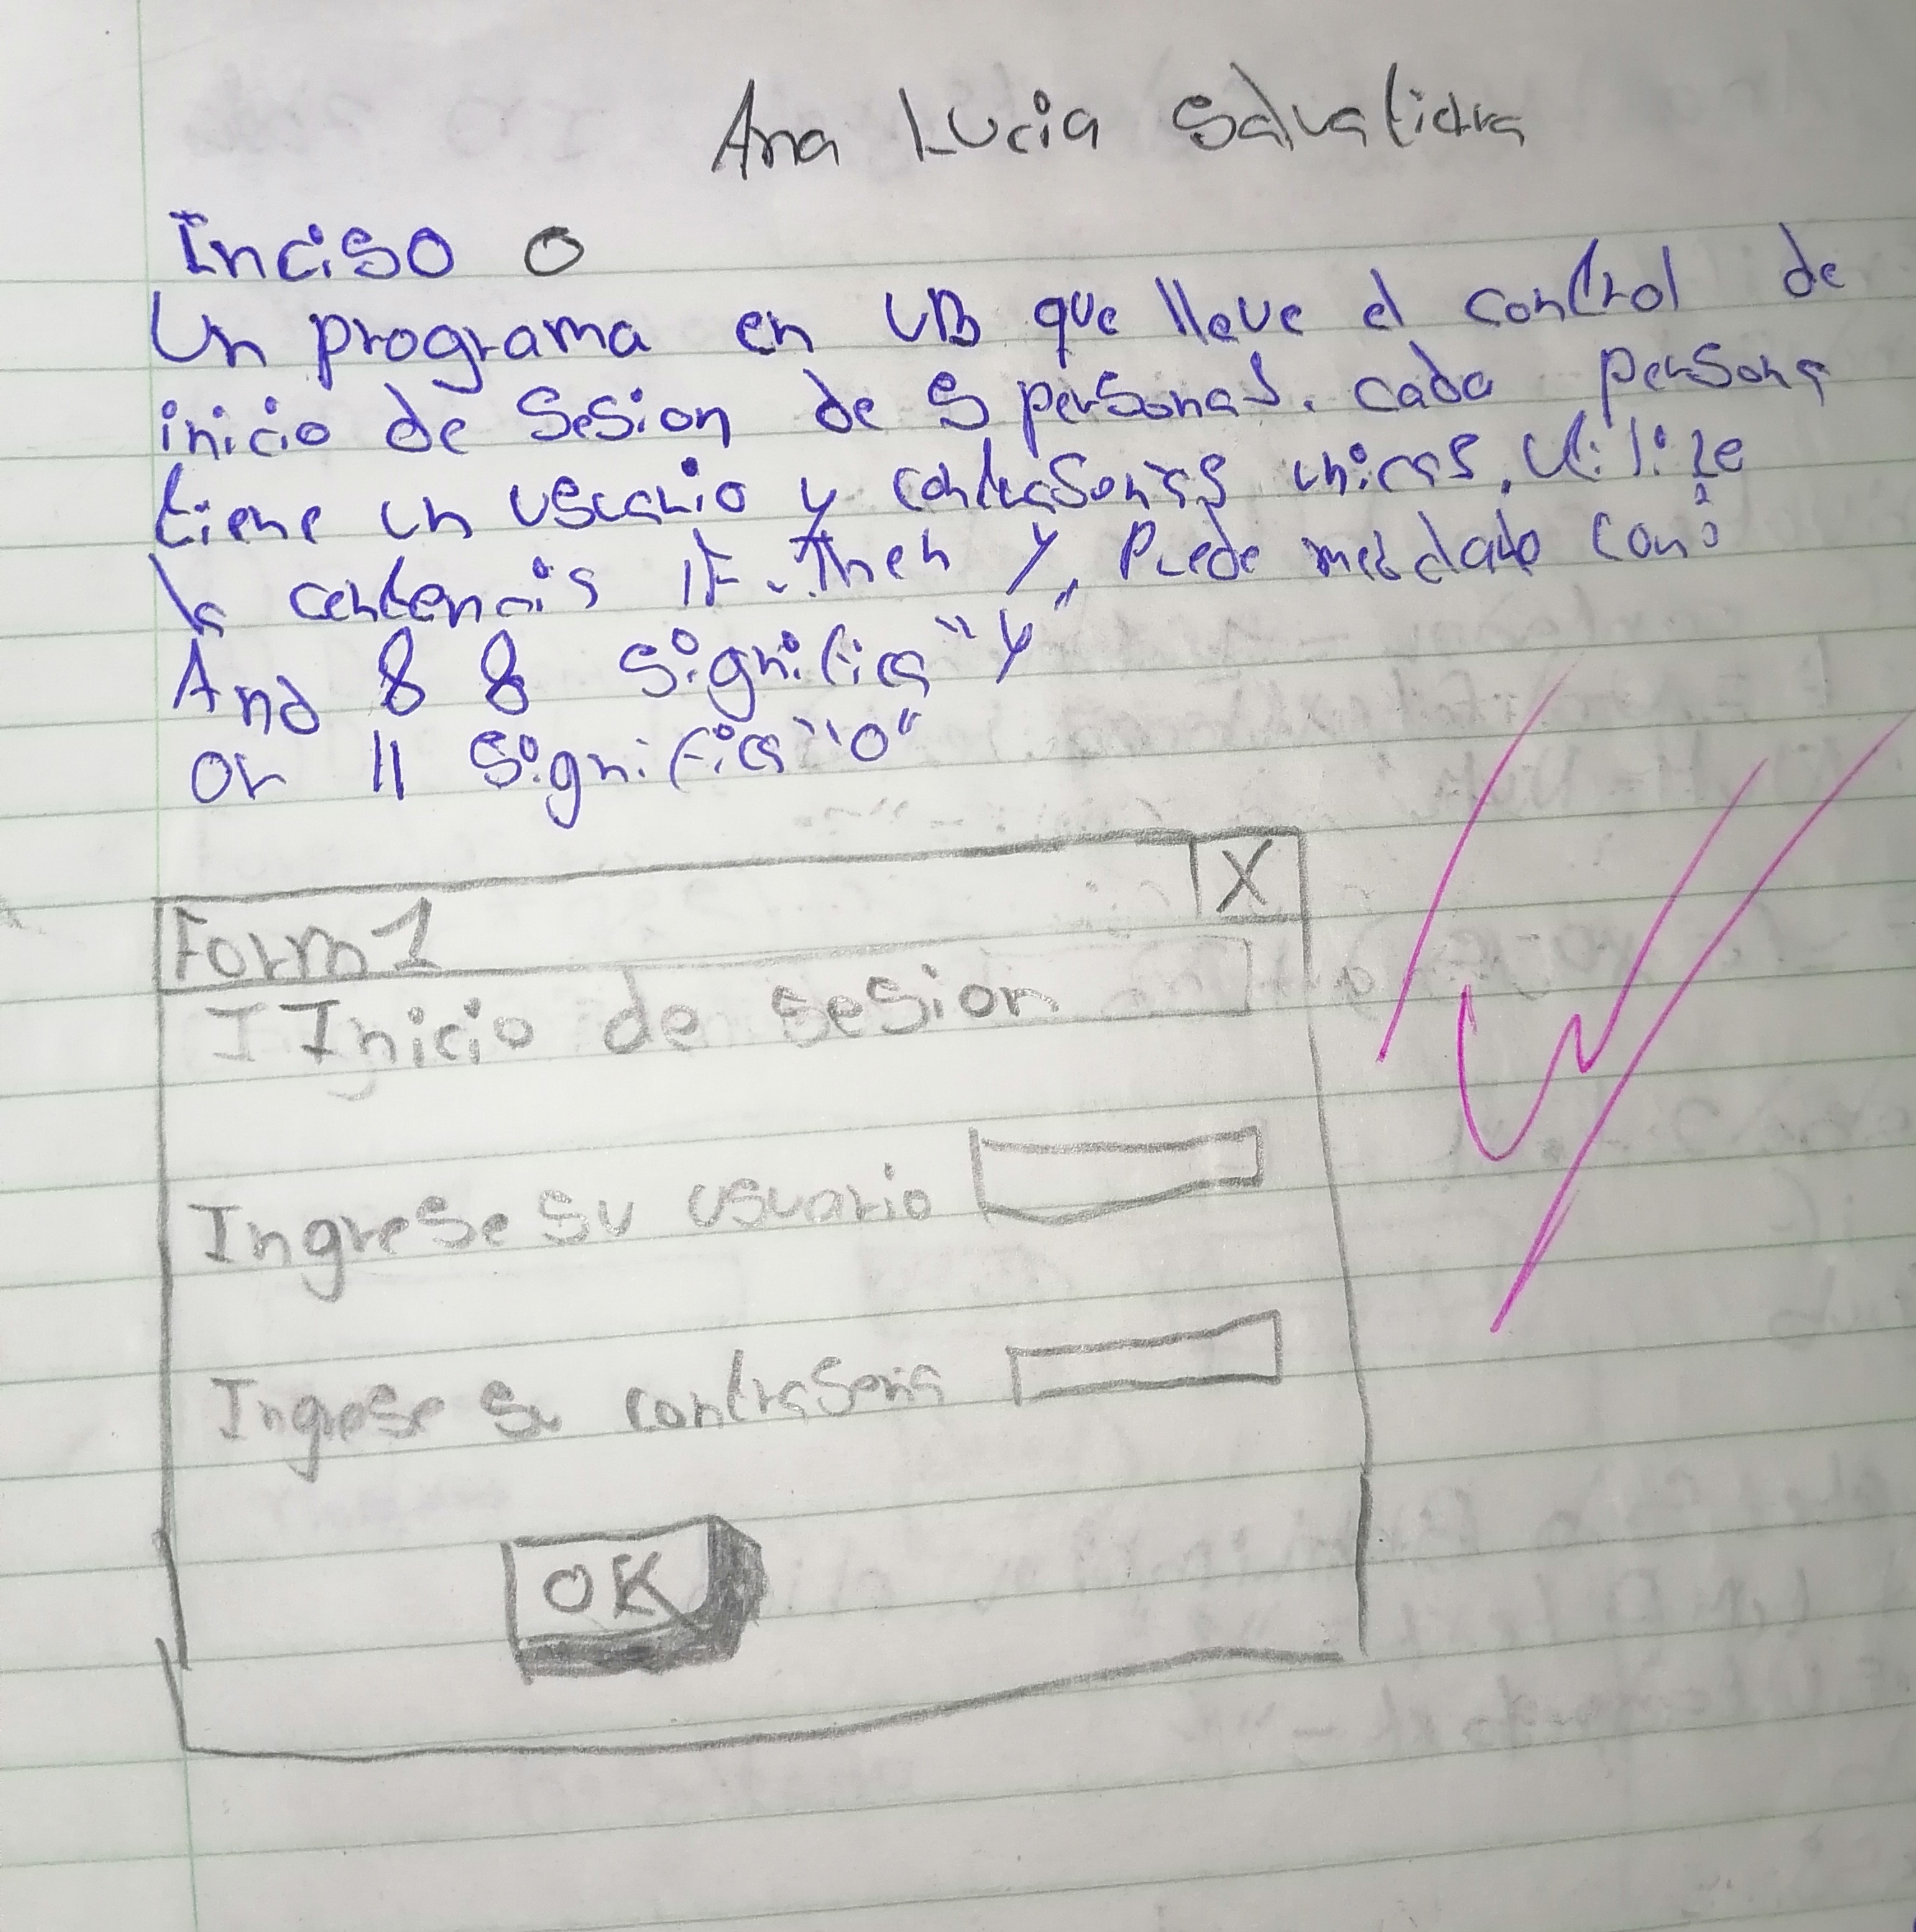 Ana Lucia Salvatierra
Inciso O
Un programa en VB que lleve el control de
inicio de Sesion de 5 personas. cada persona
tiene un usuario y contraseñas unicas. Utilize
la centencia IF..Then y, Puede mezclarlo con:
And && Significa "Y"
or || Significa "o"
Form1 X
I Inicio de sesion
Ingrese su usuario
Ingrese su contraseña
OK